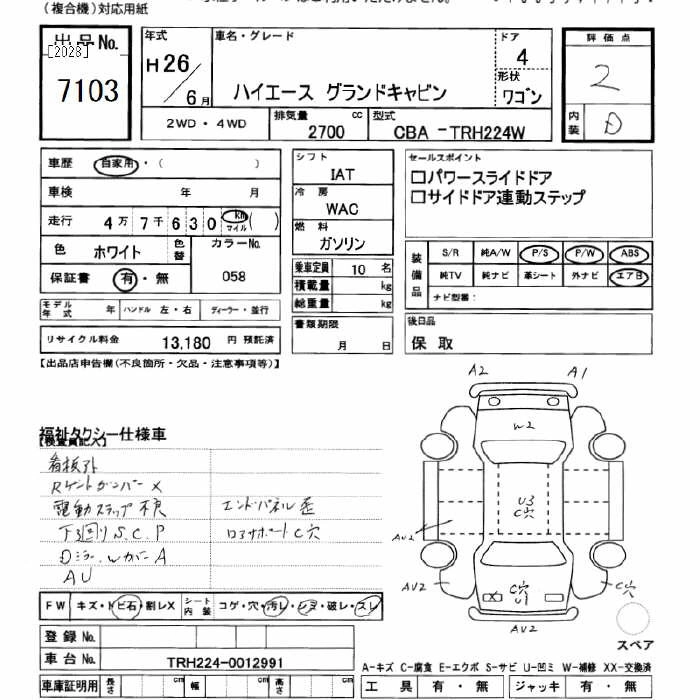 (複合機)対応用紙
出品No.
[2028]
7103
年式
H26/6月
車名・グレード
ハイエース グランドキャビン
ドア
4
形状
ワゴン
評価点
2
内装
D
2WD・4WD
排気量
2700 cc
型式
CBA-TRH224W
車歴
自家用・( )
車検 年 月
走行 4万7千630 km マイル ( )
色 ホワイト
色替
カラーNo.
058
保証書 有・無
モデル年式 年
ハンドル 左・右
ディーラー・並行
リサイクル料金 13,180 円 預託済
シフト
IAT
冷房
WAC
燃料
ガソリン
乗車定員 10 名
積載量 kg
総重量 kg
書類期限
月 日
セールスポイント
□パワースライドドア
□サイドドア連動ステップ
装備品
S/R 純A/W P/S P/W ABS
純TV 純ナビ 革シート 外ナビ エアB
ナビ型番:
後日品
保 取
【出品店申告欄(不良箇所・欠品・注意事項等)】
福祉タクシー仕様車
【検査員記入】
看板アト
Rゲートダンパー×
電動ステップ不良
エンドパネル歪
下廻りS.C.P
ロアサポートC穴
Dミラーカバー A
AU
A2
A1
W2
U3
C穴
AU2
AU2
C穴
U1
×
C穴
AU2
スペア
FW キズ・トビ石・割レX
シート内装 コゲ・穴・汚レ・シミ・破レ・スレ
登録No.
車台No. TRH224-0012991
車庫証明用 長さ cm 幅 cm 高さ cm
A-キズ C-腐食 E-エクボ S-サビ U-凹ミ W-補修 XX-交換済
工具 有・無 ジャッキ 有・無